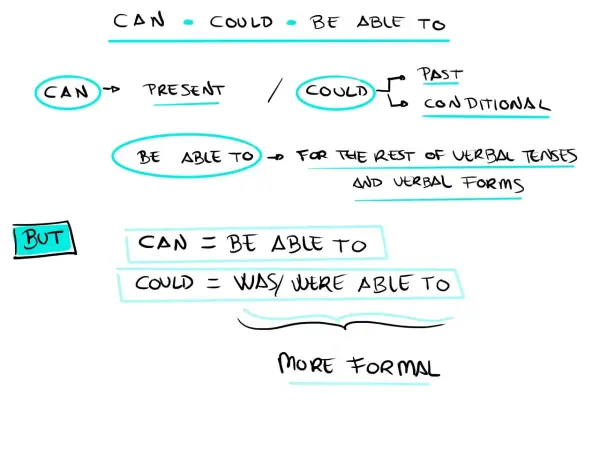 CAN • COULD • BE ABLE TO
CAN → PRESENT / COULD → PAST
→ CONDITIONAL
BE ABLE TO → FOR THE REST OF VERBAL TENSES
AND VERBAL FORMS
BUT
CAN = BE ABLE TO
COULD = WAS/WERE ABLE TO
MORE FORMAL